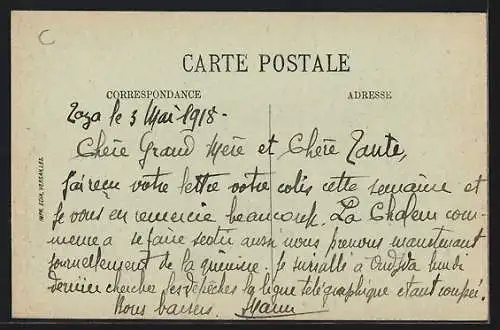 C
CARTE POSTALE
CORRESPONDANCE
ADRESSE
Taza le 3 Mai 1918-
Chère Grand Mère et Chère Tante,
J'ai reçu votre lettre votre colis cette semaine et
je vous en remercie beaucoup. La Chaleur com-
mence a se faire sentir aussi nous prenons maintenant
journellement de la quinine. Je suis allé à Oudjda lundi
dernier chercher les dépêches la ligne télégraphique étant coupée.
Bons baisers.
IMP. EDIA, VERSAILLES